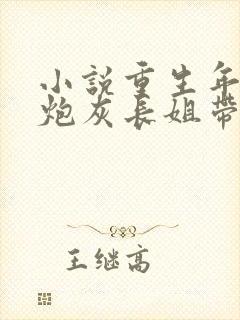 小説重生年
炮灰長姐帶
王继高